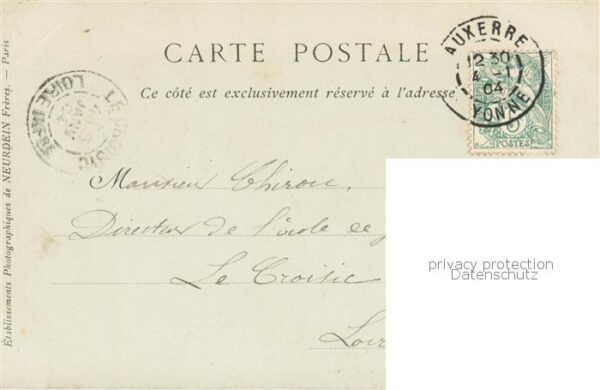 CARTE POSTALE
Ce côté est exclusivement réservé à l'adresse
AUXERRE
12 30
4 -1
04
YONNE
5
POSTES
LE CROISIC
JANV
04
LOIRE INFRE
Monsieur Chirou,
Directeur de l'école
Le Croisic
Loir
privacy protection
Datenschutz
Etablissements Photographiques de NEURDEIN Frères. — Paris